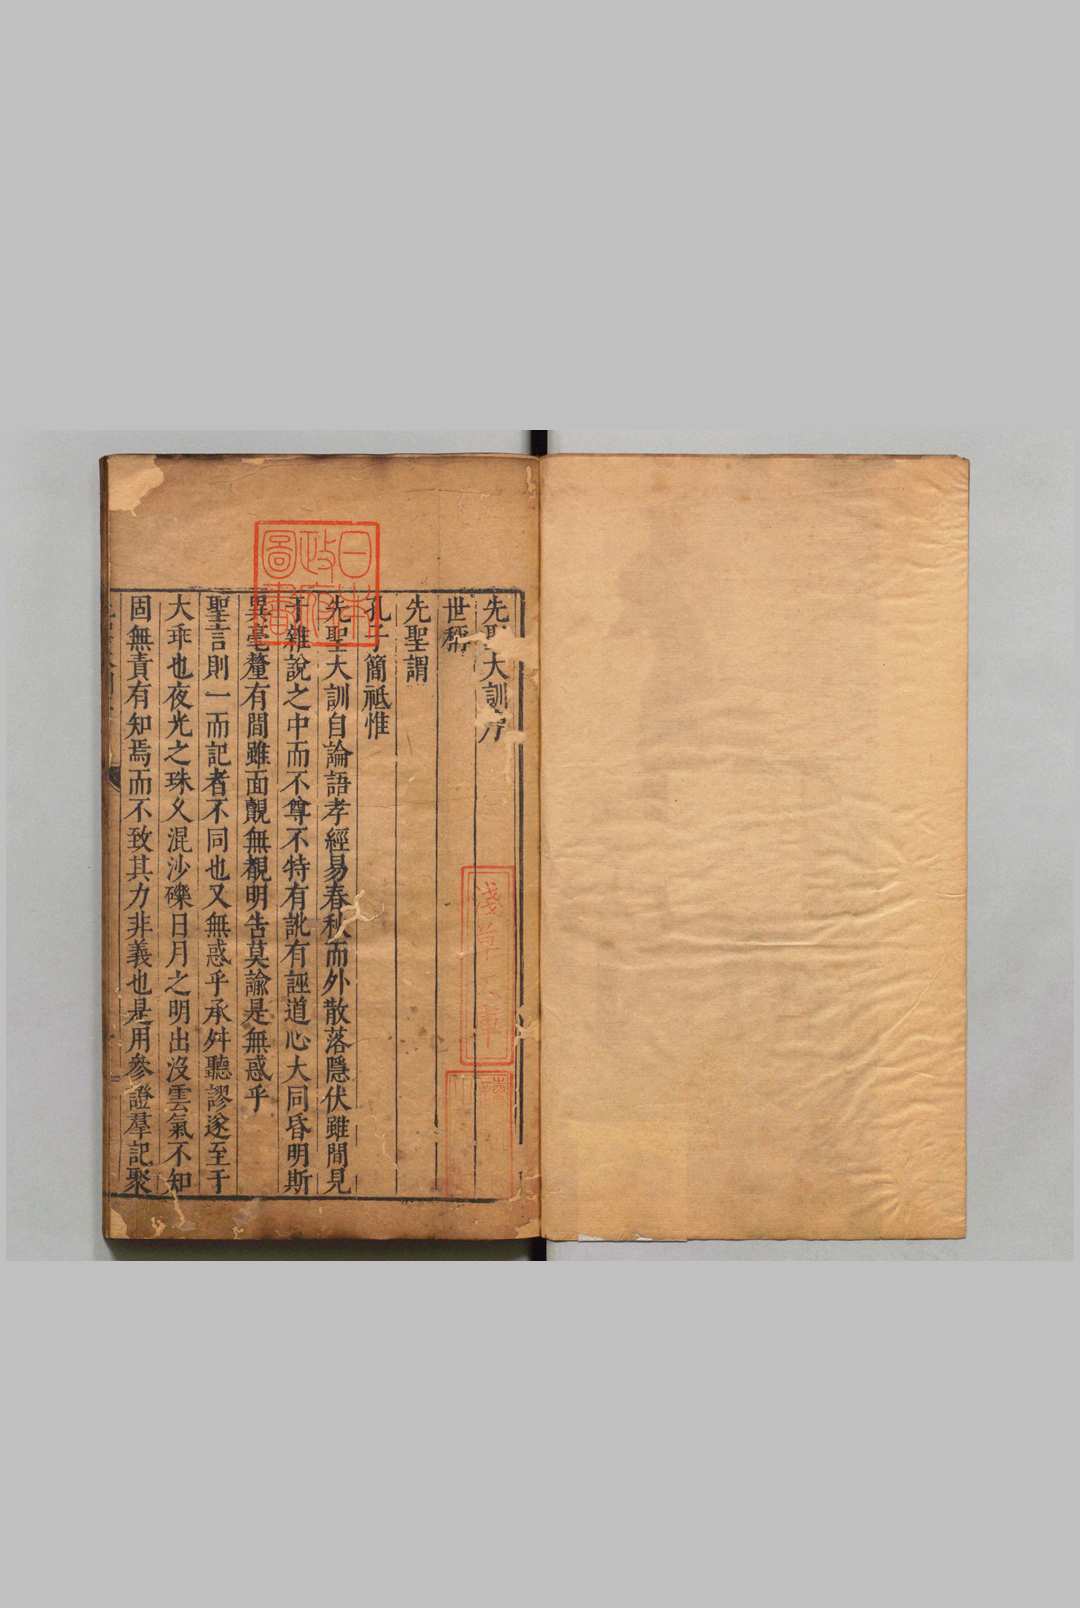 先聖大訓序
世稱
先聖謂
孔子簡祗惟
先聖大訓自論語孝經易春秋而外散落隱伏雖間見
于雜說之中而不尊不特有訛有誣道心大同昏明斯
異毫釐有間雖面覿無覩明告莫諭是無惑乎
聖言則一而記者不同也又無惑乎承舛聽謬遂至于
大乖也夜光之珠久混沙礫日月之明出沒雲氣不知
固無責有知焉而不致其力非義也是用參證羣記聚
日本
政府
圖書
淺草文庫